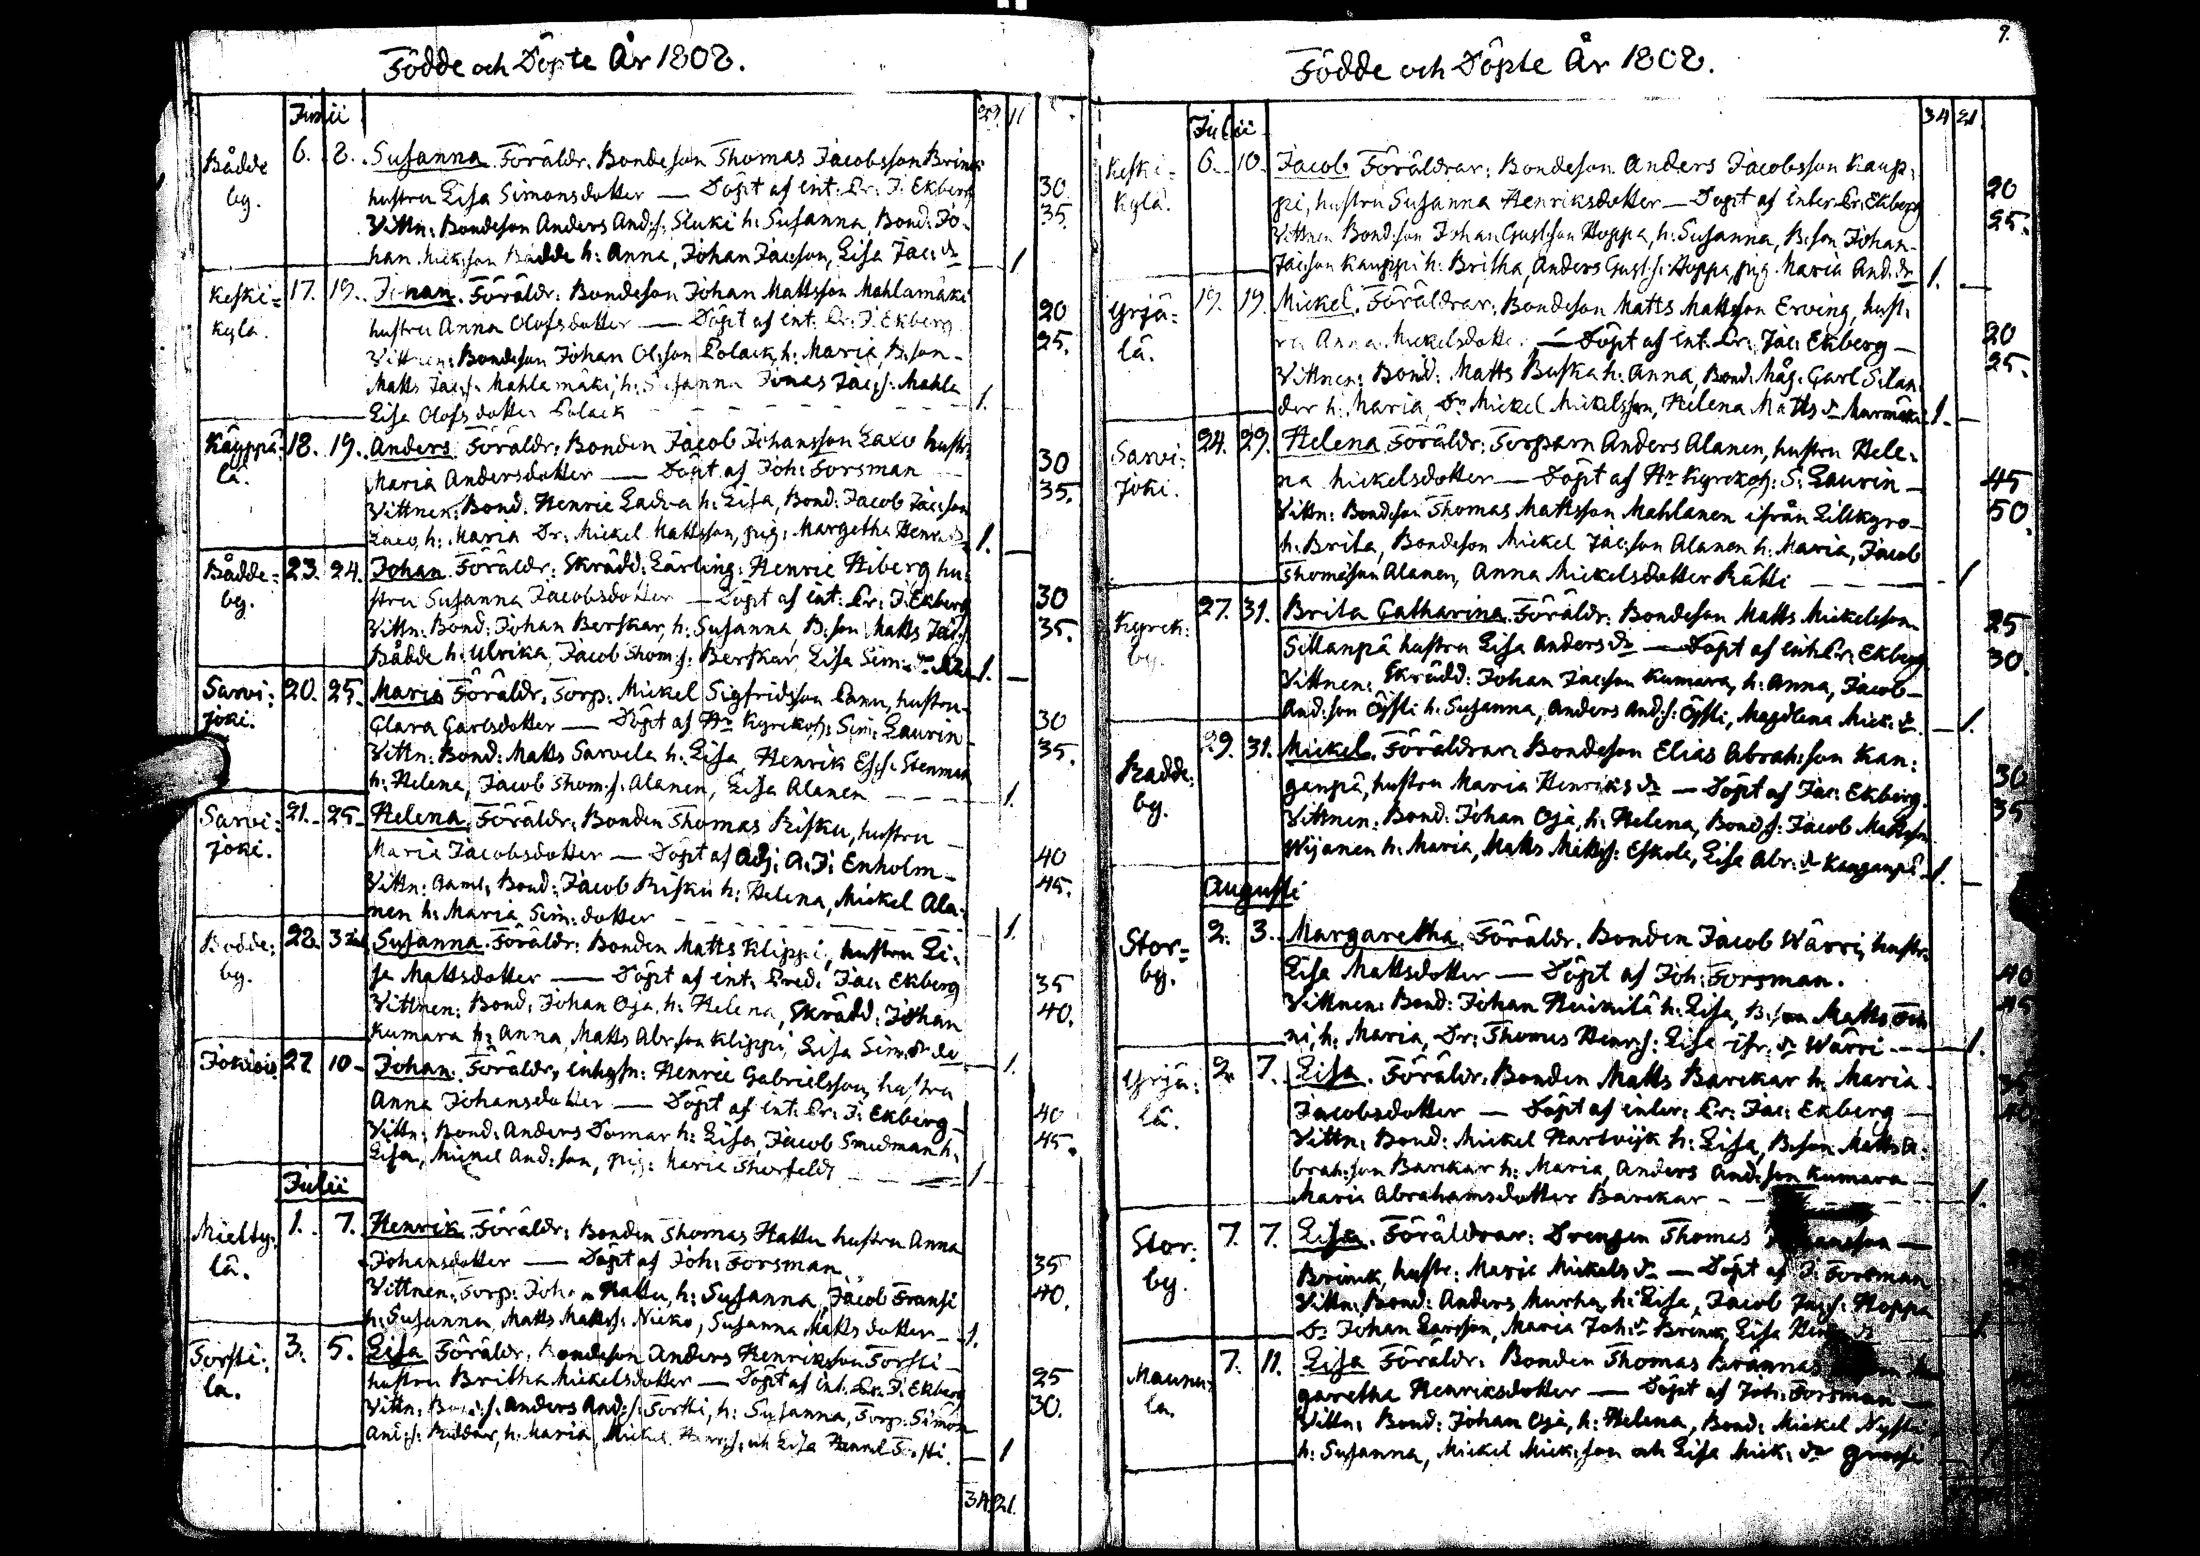 Födde och Döpte År 1808.
Junii
29 11
Bådde 6. 8. Susanna. Föräldr. Bondeson Thomas Jacobsson Brink
by. hustru Lisa Simonsdotter — Döpt af int: Pr: J. Ekberg 30
Vittn: Bondeson Anders And:s: Sluki h: Susanna, Bond: Jo- 35.
han Mick:son Bådde h: Anna, Johan Jac:son, Lisa Jac: dr 1
Keski= 17. 19. Johan. Föräldr: Bondeson Johan Mattsson Mahlamäki
kylä. hustru Anna Olofsdotter — Döpt af int: Pr: J. Ekberg 20
Vittnen: Bondeson Johan Ol:son Polack, h: Maria, B:son 25.
Matts Jac:s: Mahlamäki, h: Susanna Jonas Jac:s: Mahla
Lisa Olofsdotter Polack 1.
Käyppä= 18. 19. Anders Föräldr: Bonden Jacob Johansson Laxo hustr:
lä. Maria Andersdotter — Döpt af Joh: Forsman 30
Vittnen: Bond. Henric h: Lisa, Bond: Jacob Jac:son 35.
h: Maria Dr: Mickel Mattsson, pig: Margetha Henr: 1.
Bådde= 23. 24. Johan. Föräldr: Skrädd: Lärling: Henric Hiberg hu-
by. stru Susanna Jacobsdotter — Döpt af int: Pr: J. Ekberg 30
Vittn: Bond: Johan Berskar, h: Susanna, B:son Matts Jac:s: 35.
Bådde h: Ulrika, Jacob Thom:s: Berskar, Lisa Sim: dr 1.
Sarvi= 20. 25. Maria Föräldr: Torp: Mickel Sigfridsson Pannu, hustru
joki. Clara Carlsdotter — Döpt af Hr Kyrkoh: Sim: Laurin 30
Vittn: Bond: Matts Sarvela h: Lisa, Henrik Es:s: Stenman 35.
h: Helena, Jacob Thom:s: Alanen, Lisa Alanen 1.
Sarvi= 21. 25. Helena. Föräldr: Bonden Thomas Risku, hustru
joki. Maria Jacobsdotter — Döpt af Adj: A: J: Enholm 40
Vittn: Gaml: Bond: Jacob Risku h: Helena, Mickel Ala- 45.
nen h: Maria Sim: dotter 1.
Bådde= 22. 3 Jul Susanna. Föräldr: Bonden Matts Klippi, hustru Li-
by. sa Mattsdotter — Döpt af int: Pred: Jac: Ekberg 35
Vittnen: Bond: Johan Oja, h: Helena, Skrädd: Johan 40.
Kumara h: Anna, Matts Abr:son Klippi, Lisa Sim: dr do 1.
27 10 Johan. Föräldr, inhys:n: Henric Gabrielsson, hustru
Anna Johansdotter — Döpt af int: Pr: J: Ekberg 40
Vittn: Bond: Anders Domar h: Lisa, Jacob Smedman h: 45.
Lisa, Mickel And:son, pig: Maria 1
Julii
Mielty= 1. 7. Henrik. Föräldr: Bonden Thomas Hattu hustru Anna
lä. Johansdotter — Döpt af Joh: Forsman 35
Vittnen: Torp: Johan Hattu, h: Susanna, Jacob Fransi 40.
h: Susanna, Matts Matts:s: Nicko, Susanna Matts dotter 1.
Torsti= 3. 5. Lisa Föräldr. Bondeson Anders Henriksson Torsti
la. hustru Britha Mickelsdotter — Döpt af int. Pr. J. Ekberg 25
Vittn: Bond:s: Anders And:s: Torsti, h: Susanna, Torp: Simon 30.
And:s: h: Maria, Mickel Henr:s: och Lisa Torsti 1
34 21.
9.
Födde och Döpte År 1808.
Julii
34 21
Keski= 6. 10. Jacob Föräldrar: Bondeson Anders Jacobsson Kaup=
kylä. pi, hustru Susanna Henriksdotter — Döpt af inter Pr: Ekberg 20
Vittnen Bond:son Johan Gust:son Hoppa, h: Susanna, B:son Johan 25.
Jac:son Kauppi h: Britha, Anders Gust:s: Hoppa, pig: Maria And: dr 1.
Yrjä= 19. 19. Mickel. Föräldrar: Bondeson Matts Mattsson Erving, hust:
lä. ru Anna Mickelsdotter — Döpt af Int. Pr: Jac: Ekberg 20
Vittnen: Bond: Matts Buska h: Anna, Bond: Måg: Carl Silan- 25.
der h: Maria, Dr Mickel Mickelsson, Helena Matts dr 1.
Sarvi= 24. 29. Helena Föräldr: Torparn Anders Alanen, hustru Hele-
joki. na Mickelsdotter — Döpt af Hr Kyrckoh: S: Laurin 45
Vittn: Bondeson Thomas Mattsson Mahlanen ifrån Lillkyro 50.
h: Brita, Bondeson Mickel Jac:son Alanen h: Maria, Jacob
Thomæson Alanen, Anna Mickelsdotter Rätti 1
Kyrck: 27. 31. Brita Catharina. Föräldr: Bondeson Matts Mickelsson 25
by. Sillanpä hustru Lisa Anders dr — Döpt af int. Pr: Ekberg 30.
Vittnen: Skrädd: Johan Jac:son Kumara, h: Anna, Jacob
And:son Öfsti h: Susanna, Anders And:s: Öfsti, Magdlena Mick: dr 1.
Radde= 29. 31. Mickel. Föräldrar: Bondeson Elias Abrah:son Kan=
by. ganpä, hustru Maria Henriks dr — Döpt af Jac: Ekberg. 30
Vittnen: Bond: Johan Oja, h: Helena, Bond:s: Jacob Mattsson 35
Wijanen h: Maria, Matts Matts:s: Eskola, Lisa Abr: dr Kanganpä 1.
Augusti
Stor= 2. 3. Margaretha. Föräldr. Bonden Jacob Wärri, hustr:
by. Lisa Mattsdotter — Döpt af Joh: Forsman. 40
Vittnen: Bond: Johan Heikkilä h: Lisa, B:son Matts 45
ni, h: Maria, Dr: Thomas Henr:s: Lisa dr Wärri 1.
Yrjä= 2. 7. Lisa. Föräldr. Bonden Matts Barckar h: Maria 35
lä. Jacobsdotter — Döpt af inter: Pr: Jac: Ekberg 40
Vittn: Bond: Mickel Hartvijk h: Lisa, B:son Matts A-
brah:son Barckar h: Maria, Anders And:son Kumara
Maria Abrahamsdotter Barckar 1.
Stor= 7. 7. Lisa. Föräldrar: Drengen Thomas
by. Brinck, hustr: Maria Mickels dr — Döpt af J: Forsman
Vittn: Bond: Anders Murha, h: Lisa, Jacob Jac:s: Hoppa
Dr Johan Larsson, Maria Joh: dr Brinck, Lisa 1
Maunu= 7. 11. Lisa Föräldr: Bonden Thomas Brannas
la. garetha Henriksdotter — Döpt af Joh: Forsman
Vittn: Bond: Johan Oja, h: Helena, Bond: Mickel Nysti
h: Susanna, Mickel Mick:son och Lisa Mick: dr